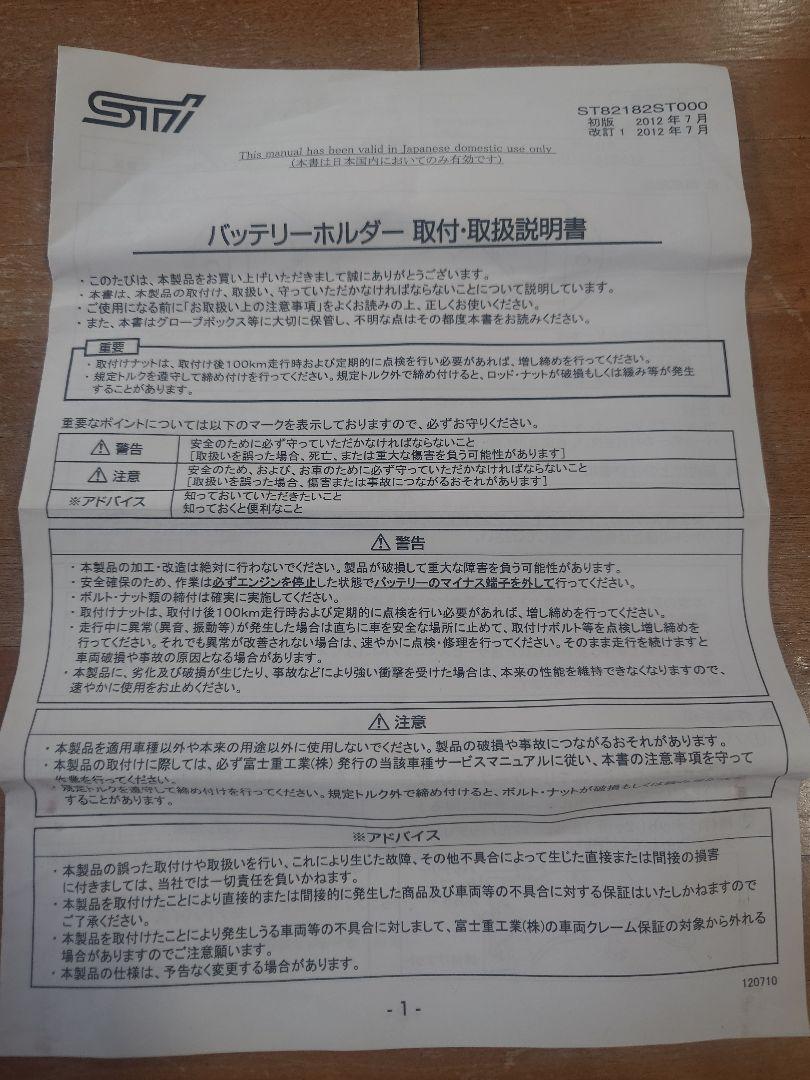 STI
ST82182ST000
初版 2012 年 7 月
改訂 1 2012 年 7 月
This manual has been valid in Japanese domestic use only
(本書は日本国内においてのみ有効です)
バッテリーホルダー 取付・取扱説明書
・このたびは、本製品をお買い上げいただきまして誠にありがとうございます。
・本書は、本製品の取付け、取扱い、守っていただかなければならないことについて説明しています。
・ご使用になる前に「お取扱い上の注意事項」をよくお読みの上、正しくお使いください。
・また、本書はグローブボックス等に大切に保管し、不明な点はその都度本書をお読みください。
重要
・取付けナットは、取付け後100km走行時および定期的に点検を行い必要があれば、増し締めを行ってください。
・規定トルクを遵守して締め付けを行ってください。規定トルク外で締め付けると、ロッド・ナットが破損もしくは緩み等が発生
することがあります。
重要なポイントについては以下のマークを表示しておりますので、必ずお守りください。
⚠ 警告
安全のために必ず守っていただかなければならないこと
[取扱いを誤った場合、死亡、または重大な傷害を負う可能性があります]
⚠ 注意
安全のため、および、お車のために必ず守っていただかなければならないこと
[取扱いを誤った場合、傷害または事故につながるおそれがあります]
※アドバイス
知っておいていただきたいこと
知っておくと便利なこと
⚠ 警告
・本製品の加工・改造は絶対に行わないでください。製品が破損して重大な障害を負う可能性があります。
・安全確保のため、作業は必ずエンジンを停止した状態でバッテリーのマイナス端子を外して行ってください。
・ボルト・ナット類の締付は確実に実施してください。
・取付けナットは、取付け後100km走行時および定期的に点検を行い必要があれば、増し締めを行ってください。
・走行中に異常(異音、振動等)が発生した場合は直ちに車を安全な場所に止めて、取付けボルト等を点検し増し締めを
行ってください。それでも異常が改善されない場合は、速やかに点検・修理を行ってください。そのまま走行を続けますと
車両破損や事故の原因となる場合があります。
・本製品に、劣化及び破損が生じたり、事故などにより強い衝撃を受けた場合は、本来の性能を維持できなくなりますので、
速やかに使用をお止めください。
⚠ 注意
・本製品を適用車種以外や本来の用途以外に使用しないでください。製品の破損や事故につながるおそれがあります。
・本製品の取付けに際しては、必ず富士重工業(株) 発行の当該車種サービスマニュアルに従い、本書の注意事項を守って
作業を行ってください。
・規定トルクを遵守して締め付けを行ってください。規定トルク外で締め付けると、ボルト・ナットが破損もしくは
することがあります。
※アドバイス
・本製品の誤った取付けや取扱いを行い、これにより生じた故障、その他不具合によって生じた直接または間接の損害
に付きましては、当社では一切責任を負いかねます。
・本製品を取付けたことにより直接的または間接的に発生した商品及び車両等の不具合に対する保証はいたしかねますので
ご了承ください。
・本製品を取付けたことにより発生しうる車両等の不具合に対しまして、富士重工業(株)の車両クレーム保証の対象から外れる
場合がありますのでご注意願います。
・本製品の仕様は、予告なく変更する場合があります。
120710
- 1 -